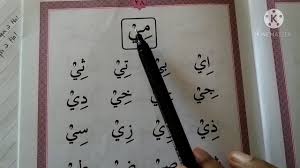 KINEMASTER
مِيْ
اِيْ بِيْ تِيْ ثِيْ
جِيْ حِيْ خِيْ دِيْ
ذِيْ رِيْ زِيْ سِيْ